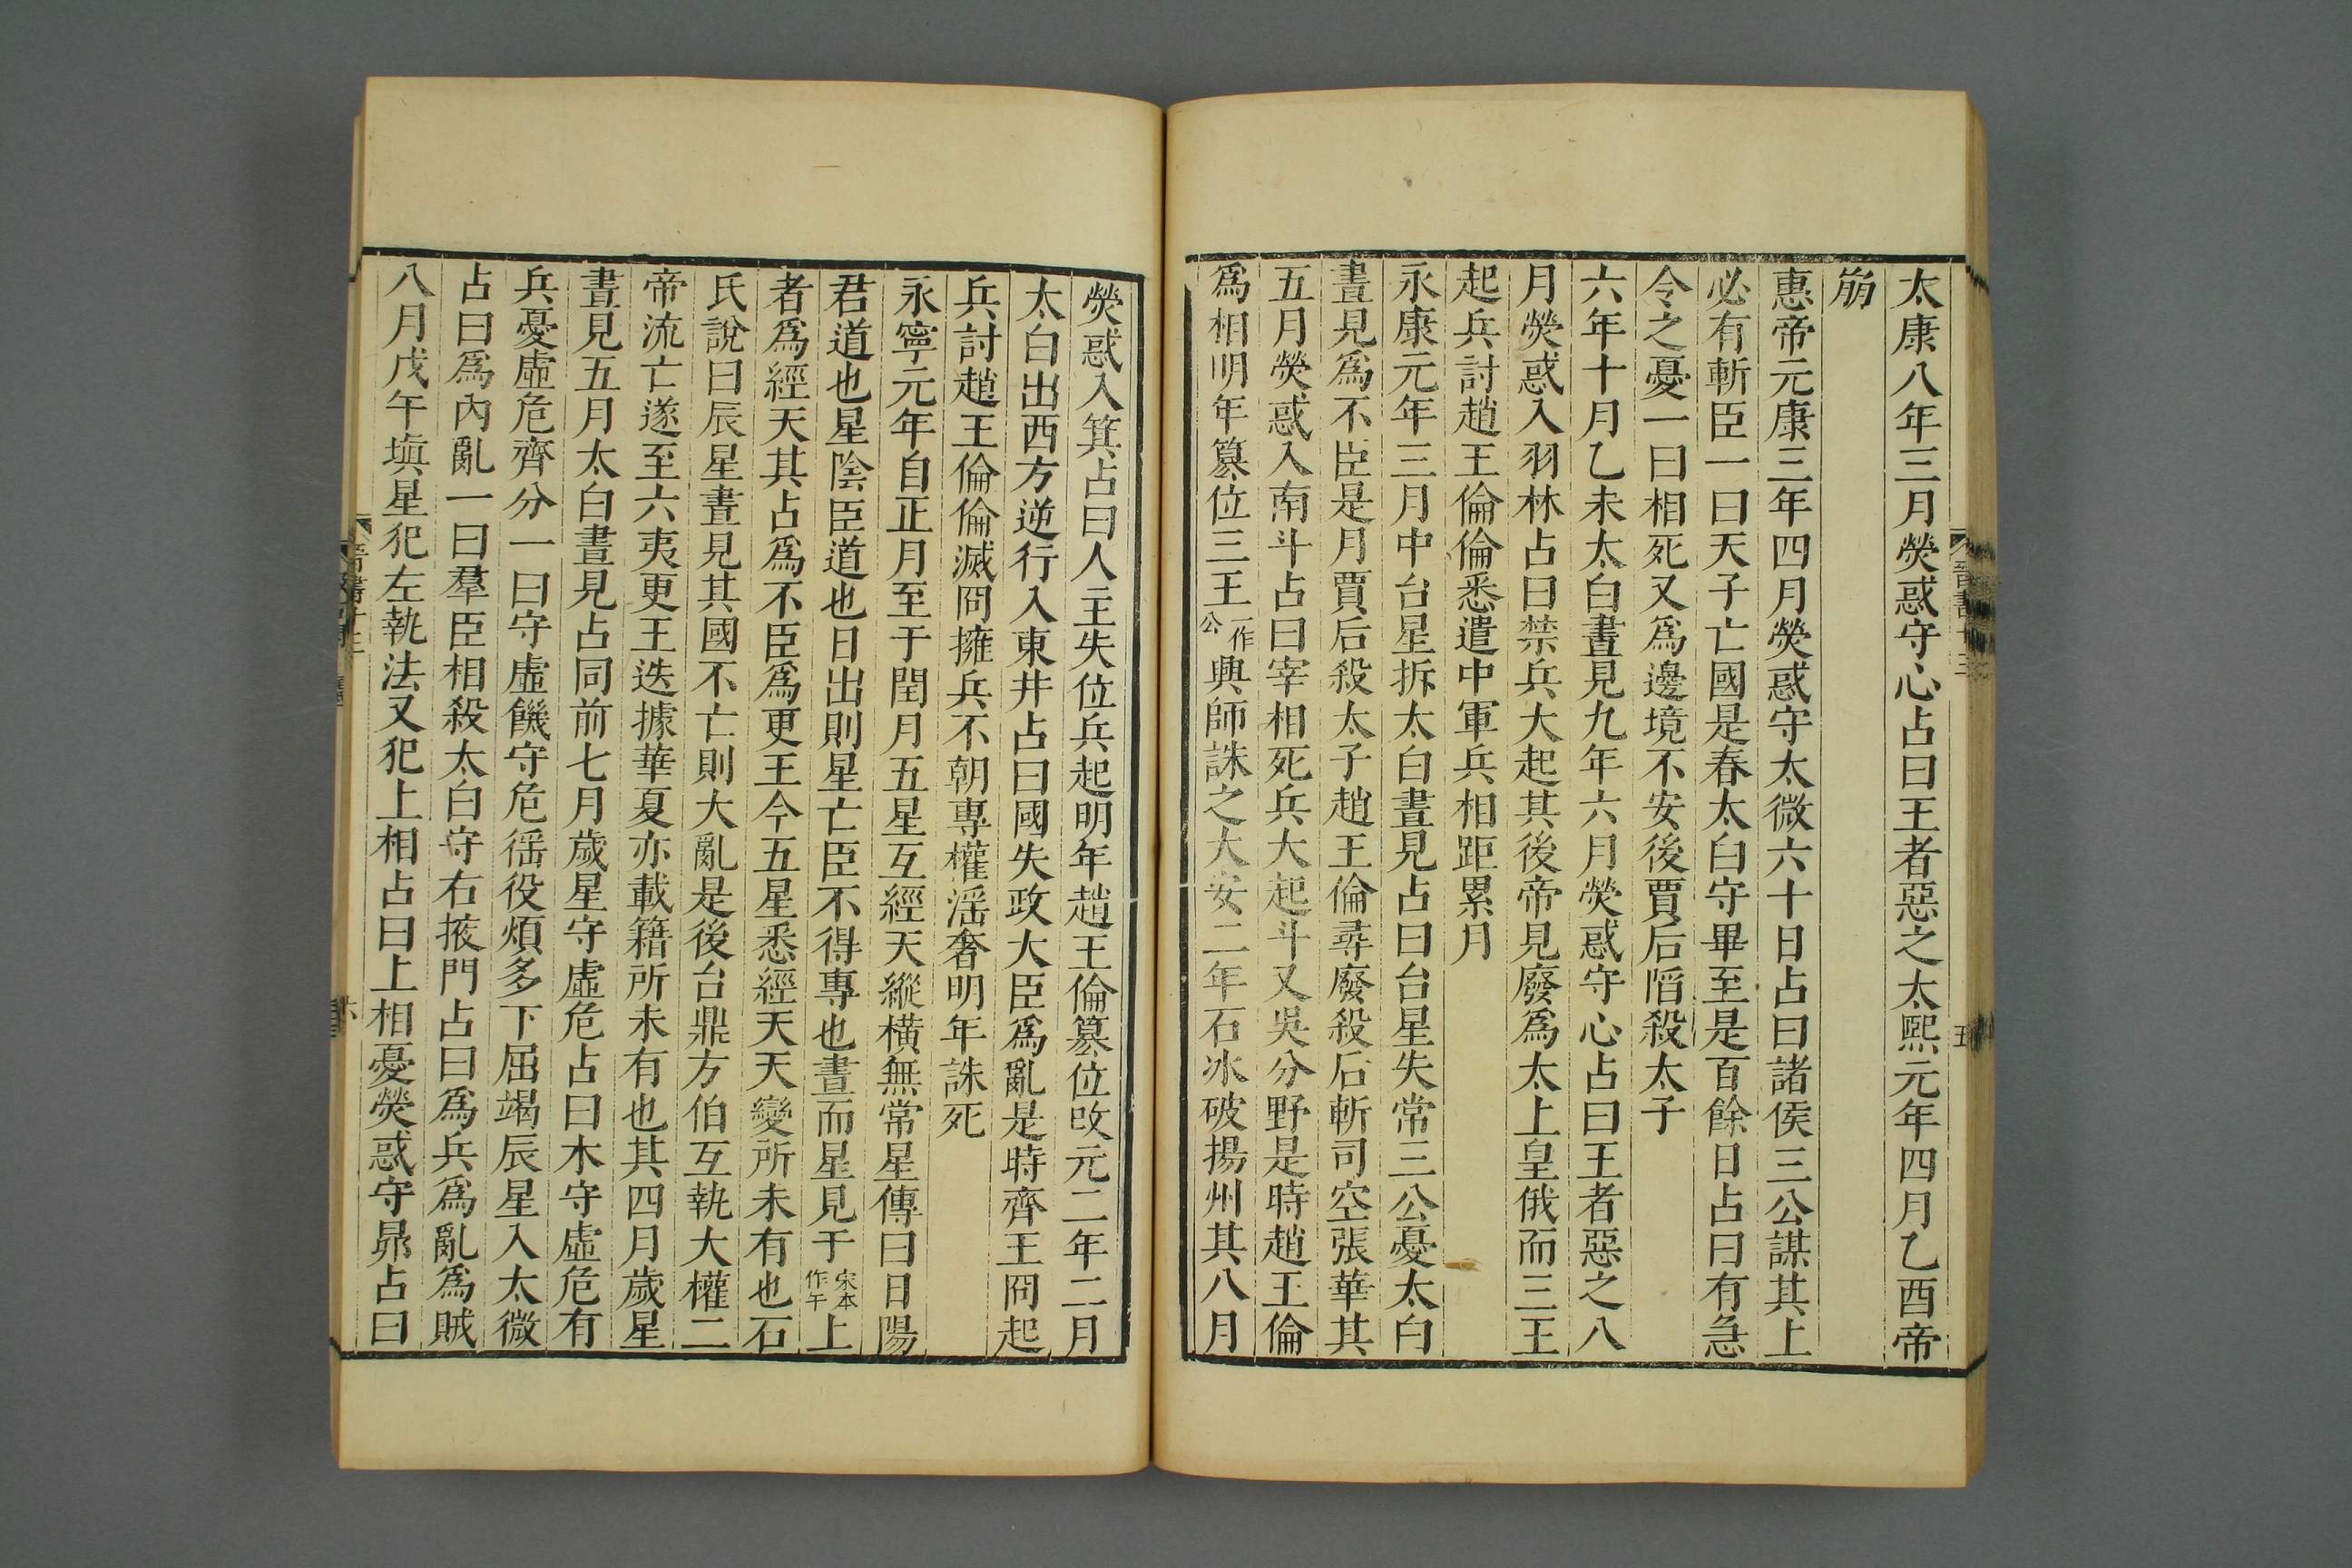 太康八年三月熒惑守心占曰王者惡之太熙元年四月乙酉帝
崩
惠帝元康三年四月熒惑守太微六十日占曰諸侯三公謀其上
必有斬臣一曰天子亡國是春太白守畢至是百餘日占曰有急
令之憂一曰相死又爲邊境不安後賈后䧟殺太子
六年十月乙未太白晝見九年六月熒惑守心占曰王者惡之八
月熒惑入羽林占曰禁兵大起其後帝見廢爲太上皇俄而三王
起兵討趙王倫倫悉遣中軍兵相距累月
永康元年三月中台星拆太白晝見占曰台星失常三公憂太白
晝見爲不臣是月賈后殺太子趙王倫尋廢殺后斬司空張華其
五月熒惑入南斗占曰宰相死兵大起斗又吳分野是時趙王倫
爲相明年篡位三王一作公興師誅之大安二年石冰破揚州其八月
晉書十三
五
熒惑入箕占曰人主失位兵起明年趙王倫篡位改元二年二月
太白出西方逆行入東井占曰國失政大臣爲亂是時齊王冏起
兵討趙王倫倫滅冏擁兵不朝專權淫奢明年誅死
永寧元年自正月至于閏月五星互經天縱橫無常星傳曰日陽
君道也星陰臣道也日出則星亡臣不得專也晝而星見于宋本作午上
者爲經天其占爲不臣爲更王今五星悉經天天變所未有也石
氏說曰辰星晝見其國不亡則大亂是後台鼎方伯互執大權二
帝流亡遂至六夷更王迭據華夏亦載籍所未有也其四月歲星
晝見五月太白晝見占同前七月歲星守虛危占曰木守虛危有
兵憂虛危齊分一曰守虛饑守危徭役煩多下屈竭辰星入太微
占曰爲內亂一曰羣臣相殺太白守右掖門占曰爲兵爲亂爲賊
八月戊午塡星犯左執法又犯上相占曰上相憂熒惑守昴占曰
晉書十三
六